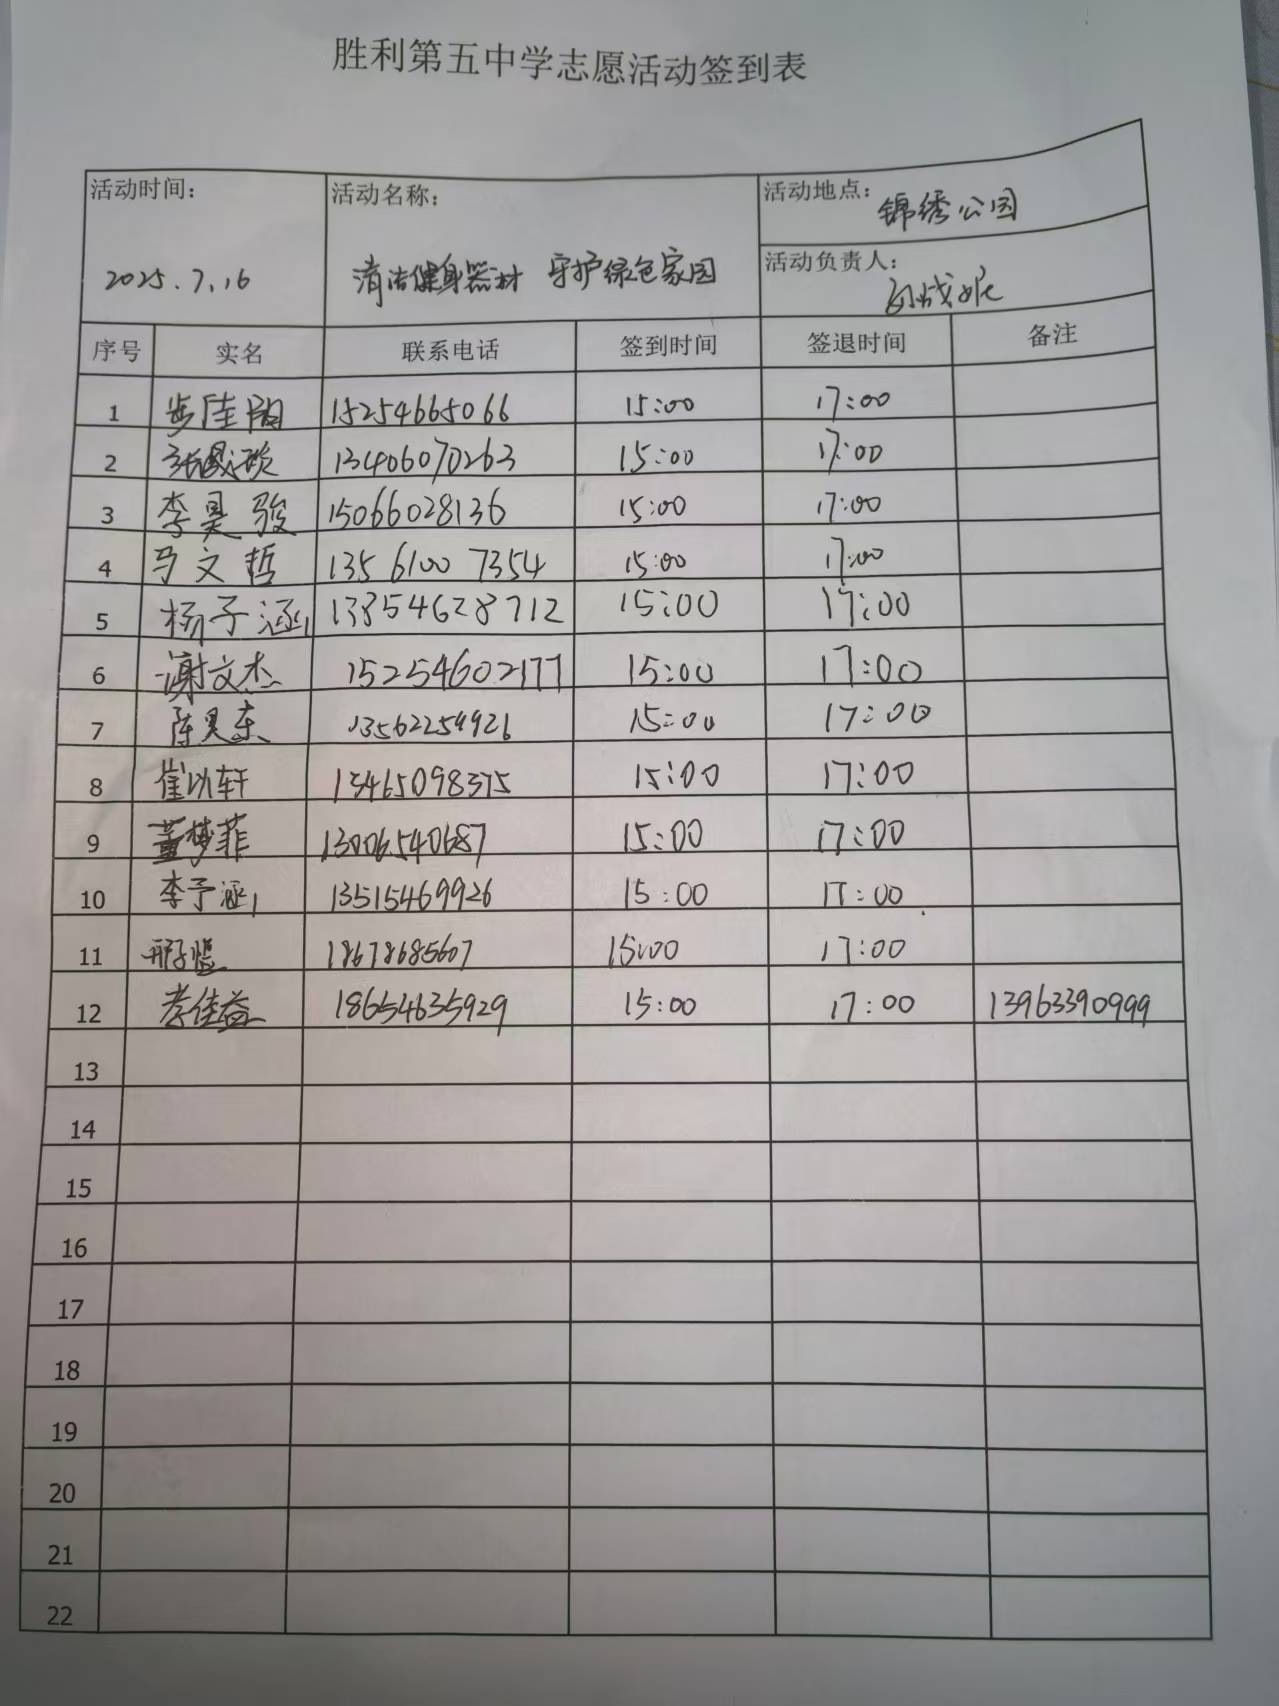 胜利第五中学志愿活动签到表
活动时间： 活动名称： 活动地点： 锦绣公园
2025.7.16 清洁健身器材 守护绿色家园 活动负责人：
序号 实名 联系电话 签到时间 签退时间 备注
1 步佳阅 15254665066 15:00 17:00
2 13406070263 15:00 17:00
3 李昊骏 15066028136 15:00 17:00
4 马文哲 13561007354 15:00 17:00
5 杨子涵 13854628712 15:00 17:00
6 谢文杰 15254602177 15:00 17:00
7 陈昊东 13562259921 15:00 17:00
8 崔以轩 13465098375 15:00 17:00
9 董梦菲 13006540687 15:00 17:00
10 李予涵 13515469926 15:00 17:00
11 18678685607 15:00 17:00
12 李佳益 18654635929 15:00 17:00 13963390999
13
14
15
16
17
18
19
20
21
22